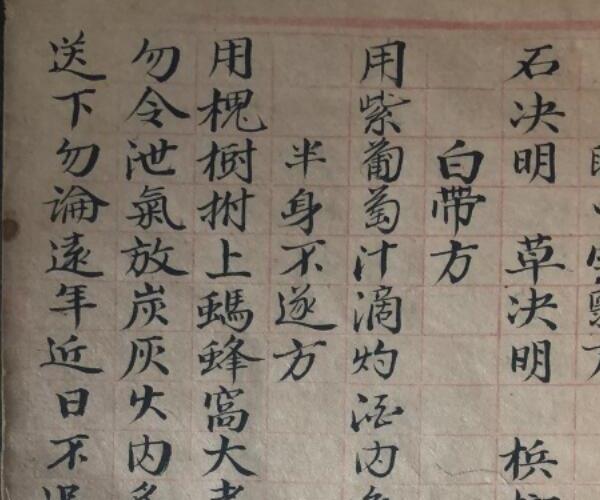 石决明 草决明 梹
白帶方
用紫葡萄汁滴灼酒内
半身不遂方
用槐樹拊上螞蜂窩大
勿令泄氣放炭灰火内
送下勿論遠年近日不